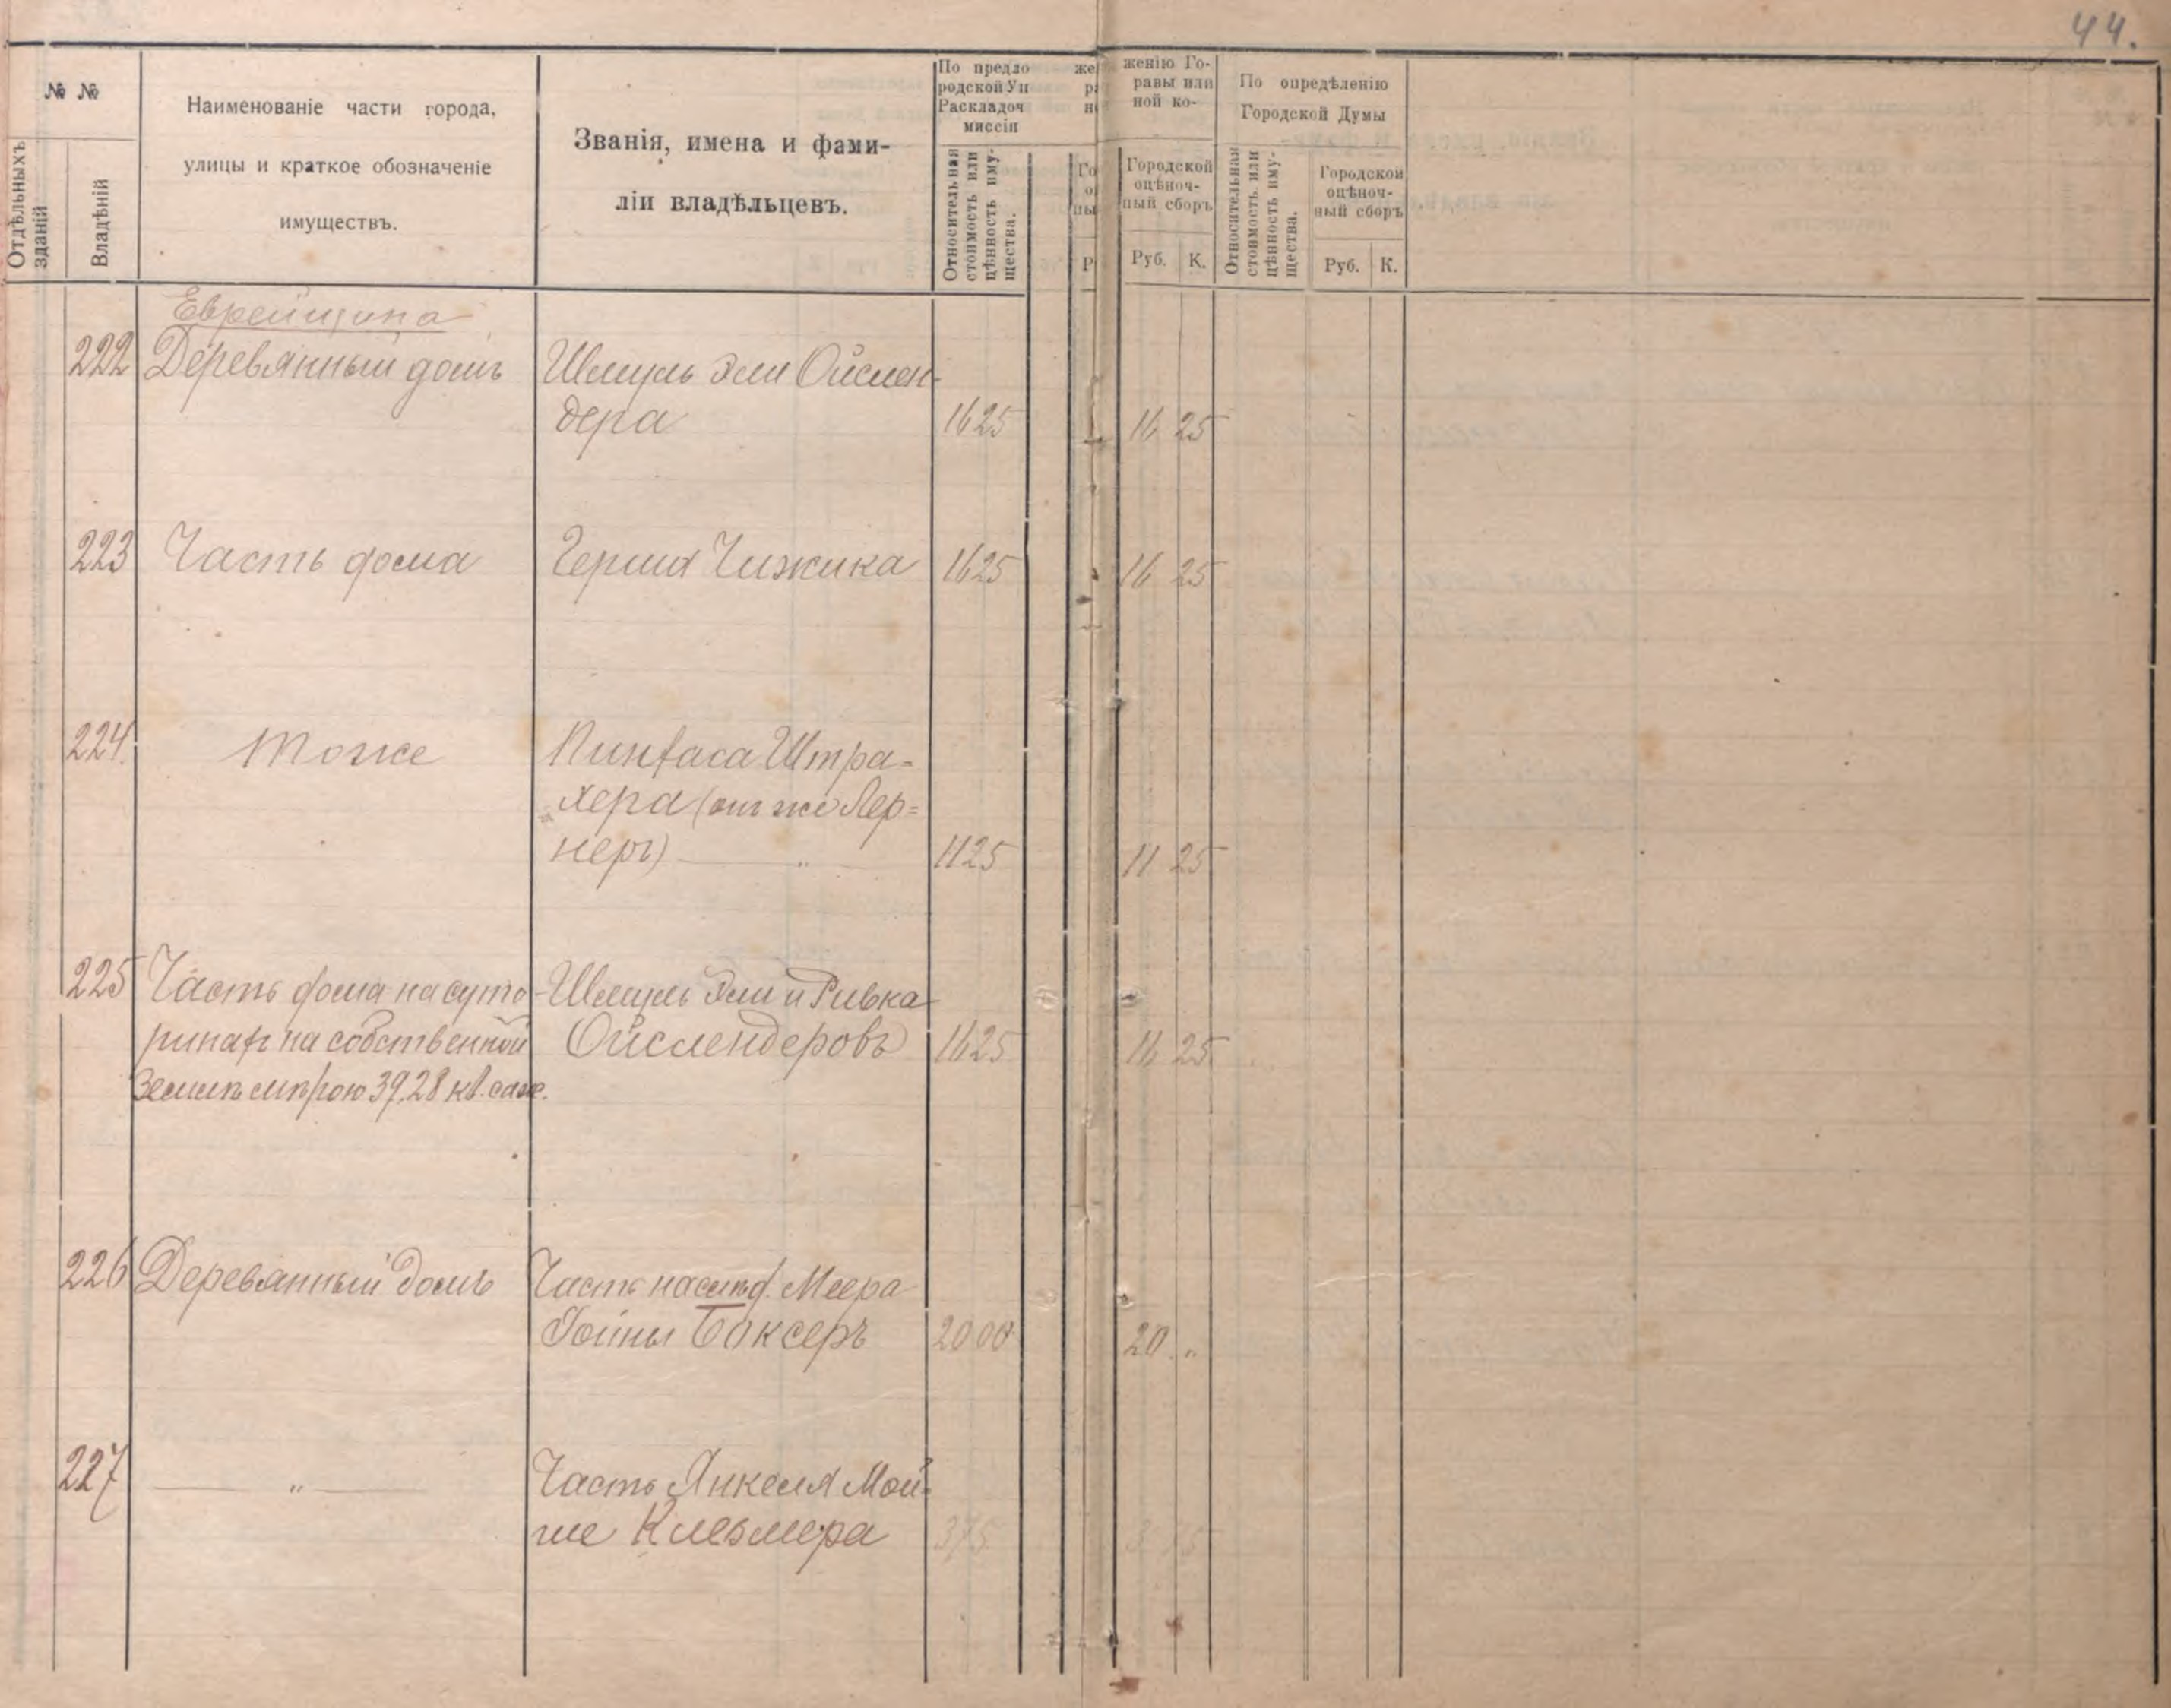 44.
№ №
Отдѣльныхъ зданій
Владѣній
Наименованіе части города,
улицы и краткое обозначеніе
имуществъ.
Званія, имена и фами-
ліи владѣльцевъ.
По предло
родской Уп
Раскладоч
миссіи
Относительная стоимость или цѣнность иму-щества.
женію Го-
равы или
ной ко-
Городской
оцѣноч-
ный сборъ
Руб. К.
По опредѣленію
Городской Думы
Относительная стоимость или цѣнность иму-щества.
Городской
оцѣноч-
ный сборъ
Руб. К.
Еврейщина
222 Деревянный домъ Шмуль Эли Ойслен-
дера 1625 16 25
223 Часть дома Герша Чижика 1625 16 25
224 Тоже Пинхаса Штра-
хера (онъ же Лер-
неръ) — „ — 1125 11 25
225 Часть дома на суто- Шмуль Эли и Ривка
ринахъ на собственной Ойслендеровъ 1625 16 25
землѣ мѣрою 39,28 кв. саж.
226 Деревянный домъ Часть наслѣд. Меера
Гойны Боксеръ 2000 20 „
227 — „ — Часть Янкеля Мой-
ше Клезмера 375 3 75